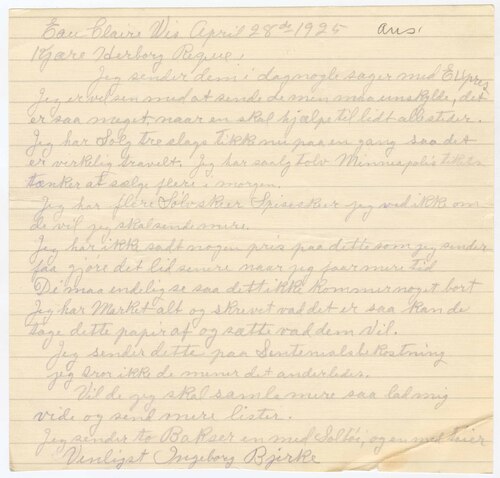 Eau Claire Wis April 28de 1925 ans.
Kjære Herborg Reque.
Jeg sender dem i dag nogle sager med Expres
Jeg er vel sen med at sende de men maa unskylle, det
er saa meget, naar en skal hjælpe til lidt alle steder.
Jeg har Solg tre slags tikk nu paa en gang saa det
er virklig travelt. Jeg har saalg tolv Minneapolis
tænker at sælge flere i morgen.
Jeg har flere Sølvskeer Spiseskeer jeg ved ikk om
de vil jeg skal sende mere.
Jeg har ikk sadt nogen pris paa dette som jeg sender
faa gjøre det lil senere naar jeg faar mere tid
De maa endelig se saa det ikk kommer noget bort
Jeg har Merket alt og skrevet vad det er saa kan de
tage dette papir af og sætte vad dem vil.
Jeg sender dette paa Sentenialsbekostning
jeg tror ikke de mener det anderledes.
Vil de jeg skal samle mere saa lad mig
vide og send mere lister.
Jeg sender to Bakser en med og en med
Venligst Ingeborg Bjerke